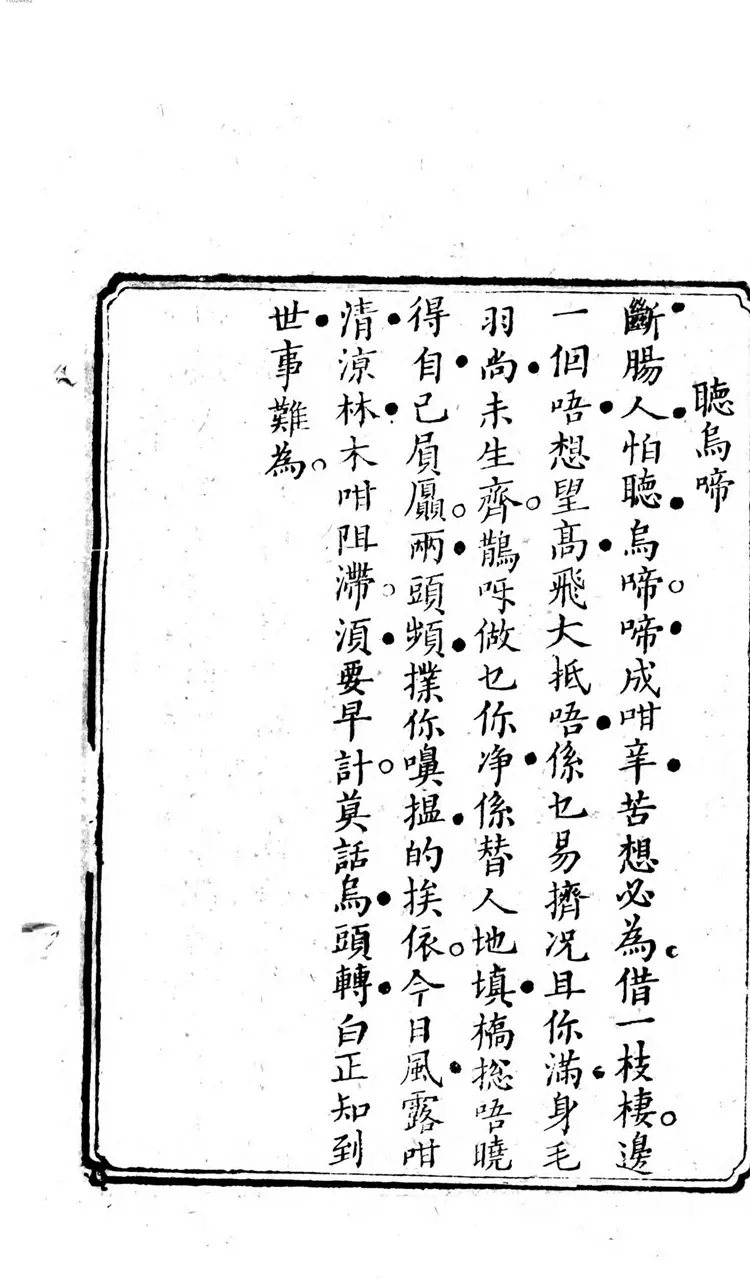 聽烏啼
斷腸人怕聽烏啼啼成咁辛苦想必為借一枝棲邊
一個唔想望高飛大抵唔係乜易擠况且你滿身毛
羽尚未生齊鵲呀做乜你净係替人地填橋捴唔曉
得自己屓贔兩頭頻撲你嘷揾的挨依今日風露咁
清涼林木咁阻滯湏要早計莫話烏頭轉白正知到
世事難為